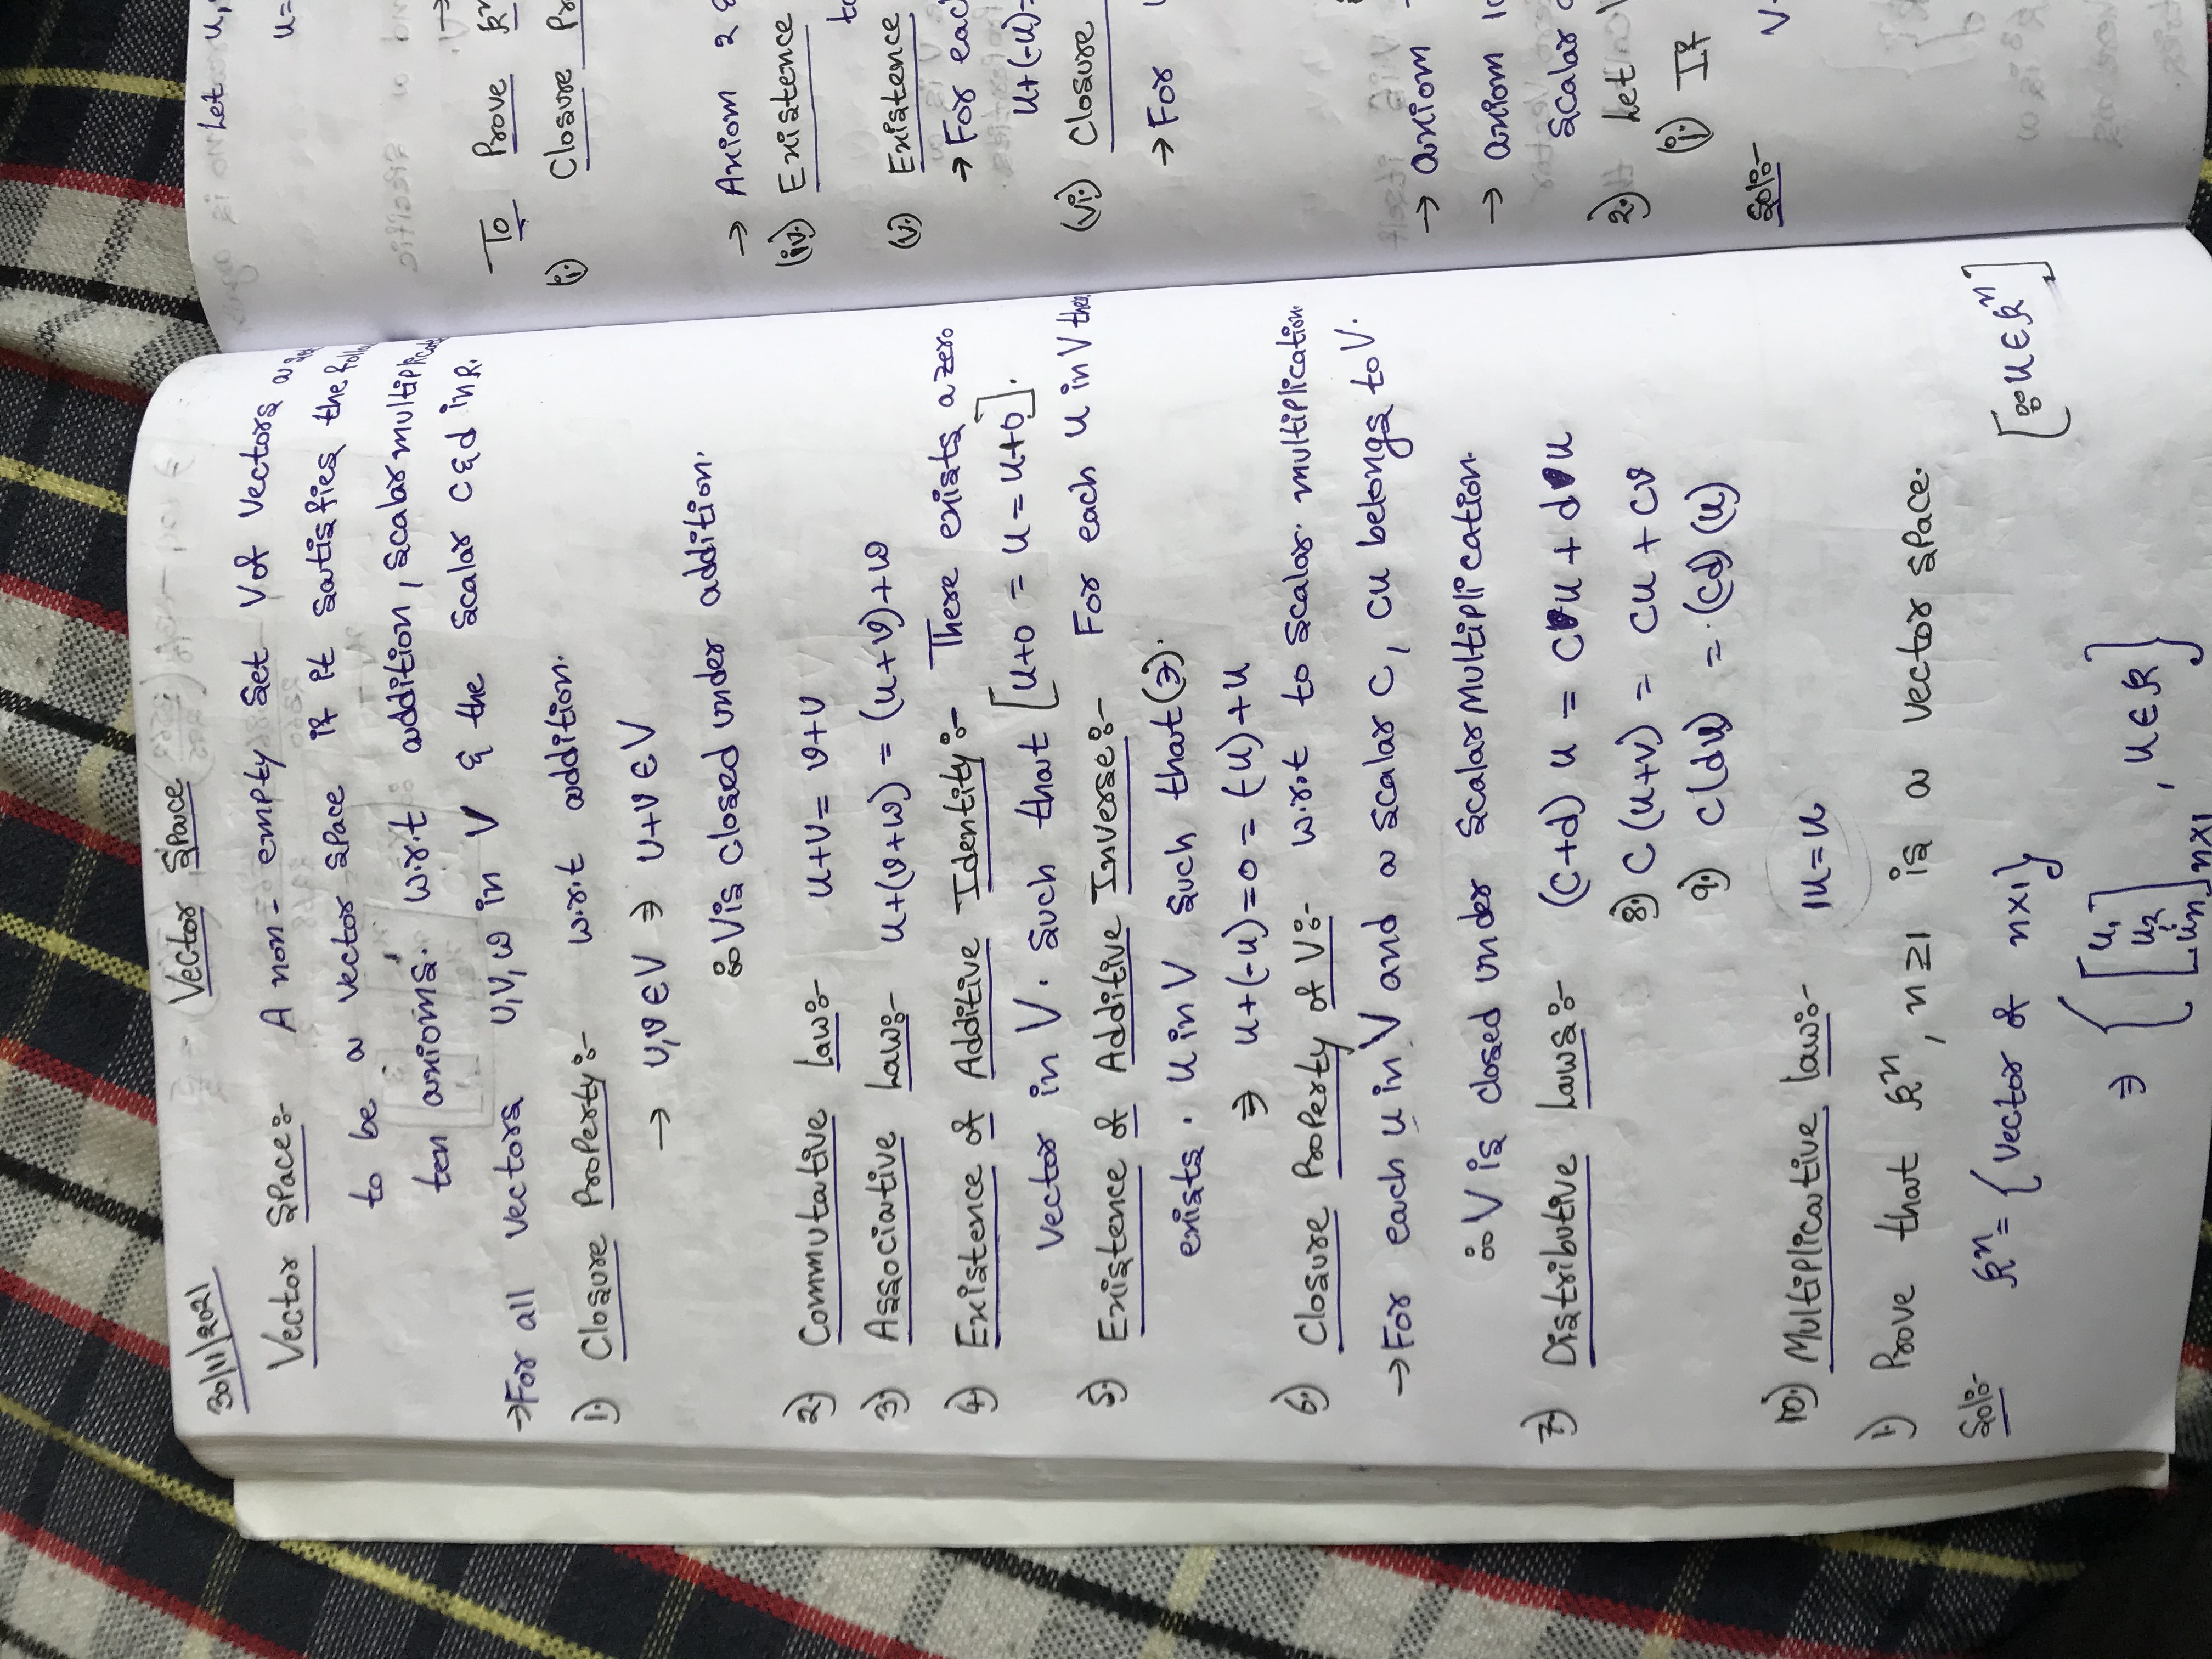 30/11/2021
Vector Space
Vector Space:- A non-empty set V of vectors
to be a vector space if it satisfies the
ten axioms. w.r.t addition, scalar
→ For all vectors U,V,W in V & the scalar C & d in R.
1.) Closure Property:- w.r.t addition.
→ U,V ∈ V ⇒ U+V ∈ V
∴ V is closed under addition.
2.) Commutative Law:- U+V = V+U
3.) Associative Law:- U+(V+W) = (U+V)+W
4.) Existence of Additive Identity:- There exists a zero
vector in V. Such that [U+0 = U = U+0].
5.) Existence of Additive Inverse:- For each U in V
exists. U in V such that (∋).
⇒ U+(-U)=0=(-U)+U
6.) Closure Property of V:- w.r.t to scalar. multiplication.
→ For each U in V and a scalar C, CU belongs to V.
∴ V is closed under scalar multiplication.
7.) Distributive Laws:- (C+d) U = CU + dU
8.) C(U+V) = CU + CV
9.) C(dU) = (Cd)(U)
10.) Multiplicative law:- 1U=U
1.) Prove that Rⁿ, n≥1 is a vector space.
Sol:- Rⁿ = {Vector of n×1} [∵ U ∈ Rⁿ]
⇒ { [U₁
U₂
⋮
Uₙ]n×1 , U ∈ R }
Let U,
U=
To Prove Rⁿ
(i.) Closure
→ Axiom 2 &
(iv.) Existence
(v.) Existence
→ For each
U+(-U)=
(vi.) Closure
→ For
→ axiom
→ axiom 10
Scalar
2.) Let
(i.) If
Sol:- V